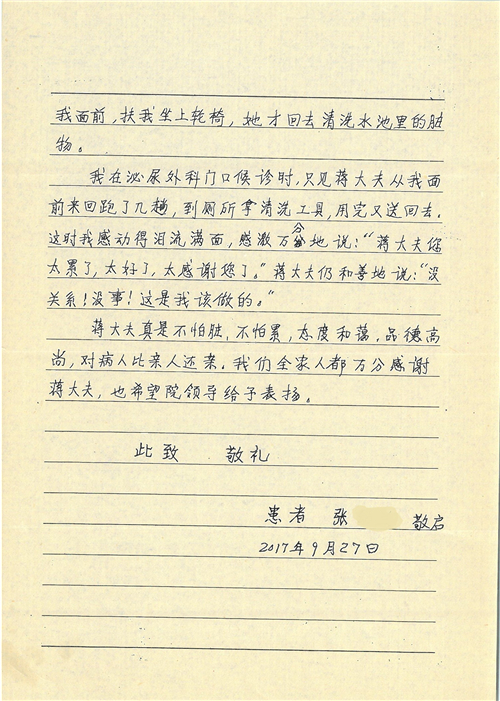 我面前，扶我坐上轮椅，她才回去清洗水池里的脏
物。
我在泌尿外科门口候诊时，只见蒋大夫从我面
前来回跑了几趟，到厕所拿清洗工具，用完又送回去。
这时我感动得泪流满面，感激万分地说：“蒋大夫您
太累了，太好了，太感谢您了。”蒋大夫仍和善地说：“没
关系！没事！这是我该做的。”
蒋大夫真是不怕脏，不怕累，态度和蔼，品德高
尚，对病人比亲人还亲。我们全家人都万分感谢
蒋大夫，也希望院领导给予表扬。
此致 敬礼
患者 张 敬启
2017年9月27日